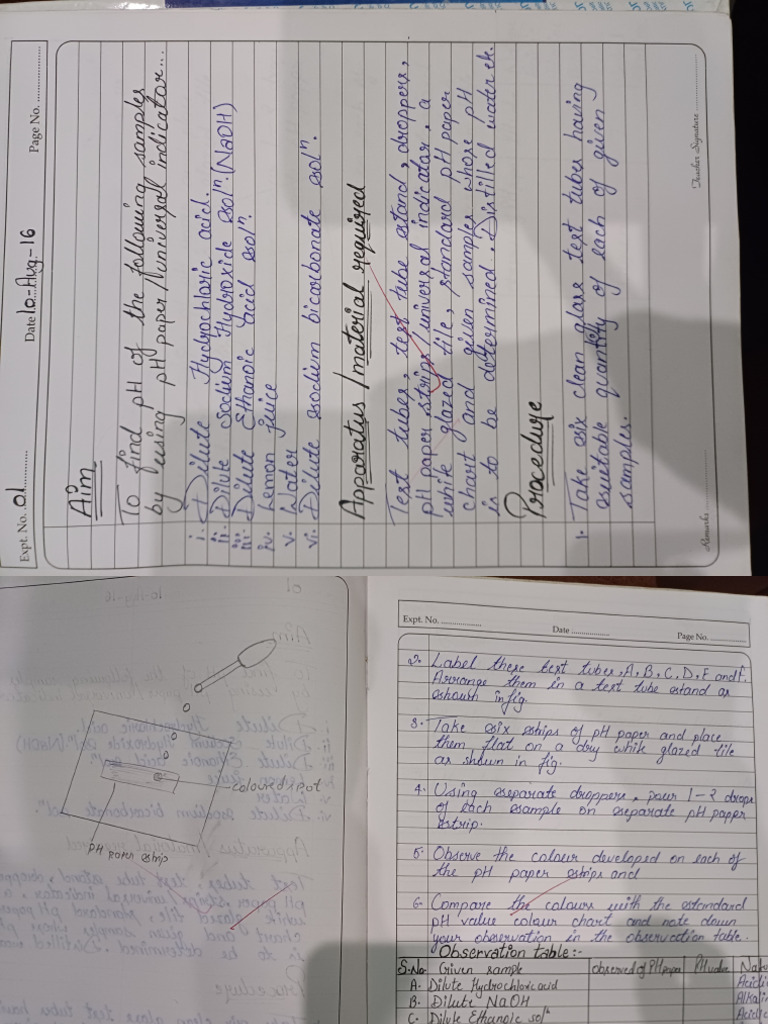 Expt. No. 01 Date 10-Aug-16 Page No.
Aim
To find pH of the following samples
by using pH paper/universal indicator...
i. Dilute Hydrochloric acid.
ii. Dilute Sodium Hydroxide solⁿ. (NaOH)
iii. Dilute Ethanoic acid solⁿ.
iv. Lemon juice
v. Water
vi. Dilute sodium bicarbonate solⁿ.
Apparatus / material required
Test tubes, test tube stand, droppers,
pH paper strips/universal indicator, a
while glazed tile, standard pH paper
chart and given samples whose pH
is to be determined. Distilled water etc.
Procedure
1. Take six clean glass test tubes having
suitable quantity of each of given
samples.
Remarks
Teacher Signature
coloured spot
pH paper strip
Expt. No. Date Page No.
2. Label these test tubes, A, B, C, D, E and F.
Arrange them in a test tube stand as
shown in fig.
3. Take six strips of pH paper and place
them flat on a dry while glazed tile
as shown in fig.
4. Using separate droppers, pour 1-2 drops
of each sample on separate pH paper
strip.
5. Observe the colour developed on each of
the pH paper strips and
6. Compare the colours with the standard
pH value colour chart and note down
your observation in the observation table.
Observation table:-
S.No Given sample observed of pH paper pH value Natu
A. Dilute Hydrochloric acid Acidic
B. Dilute NaOH Alkalin
C. Dilute Ethanoic solⁿ Acidic